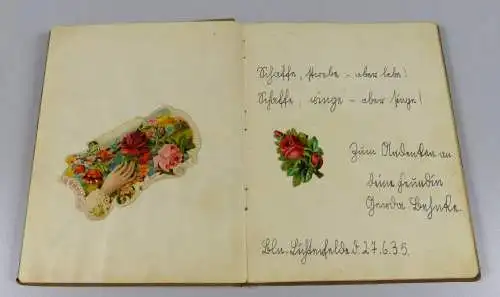 Schaffe, strebe – aber lebe!
Schaffe, ringe – aber singe!
Zum Andenken an
deine Freundin
Gerda Behnke.
Bln. Lichterfelde d. 27.6.35.